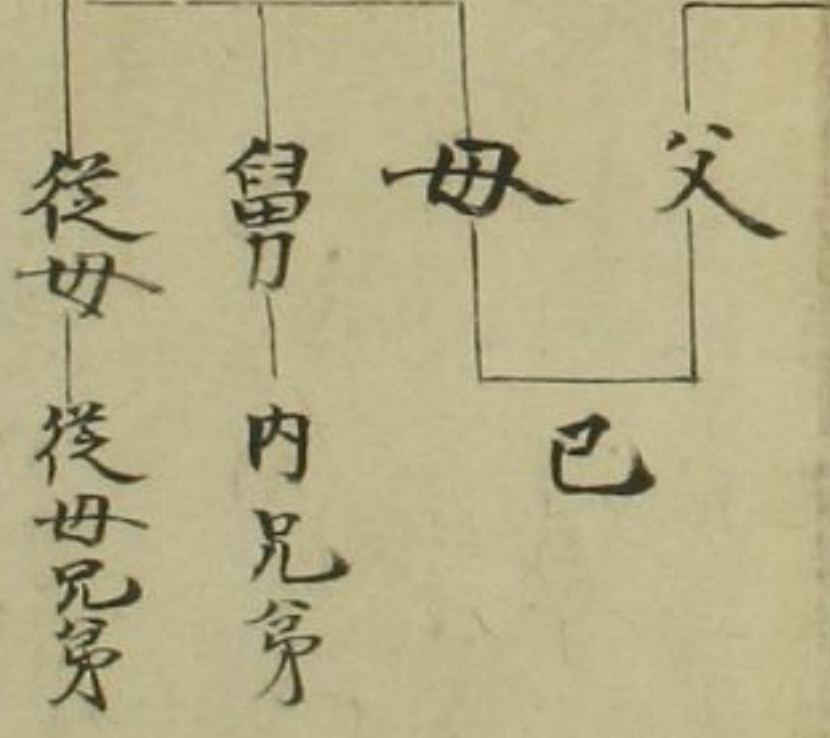 父
母
己
舅
内兄弟
從母
從母兄弟